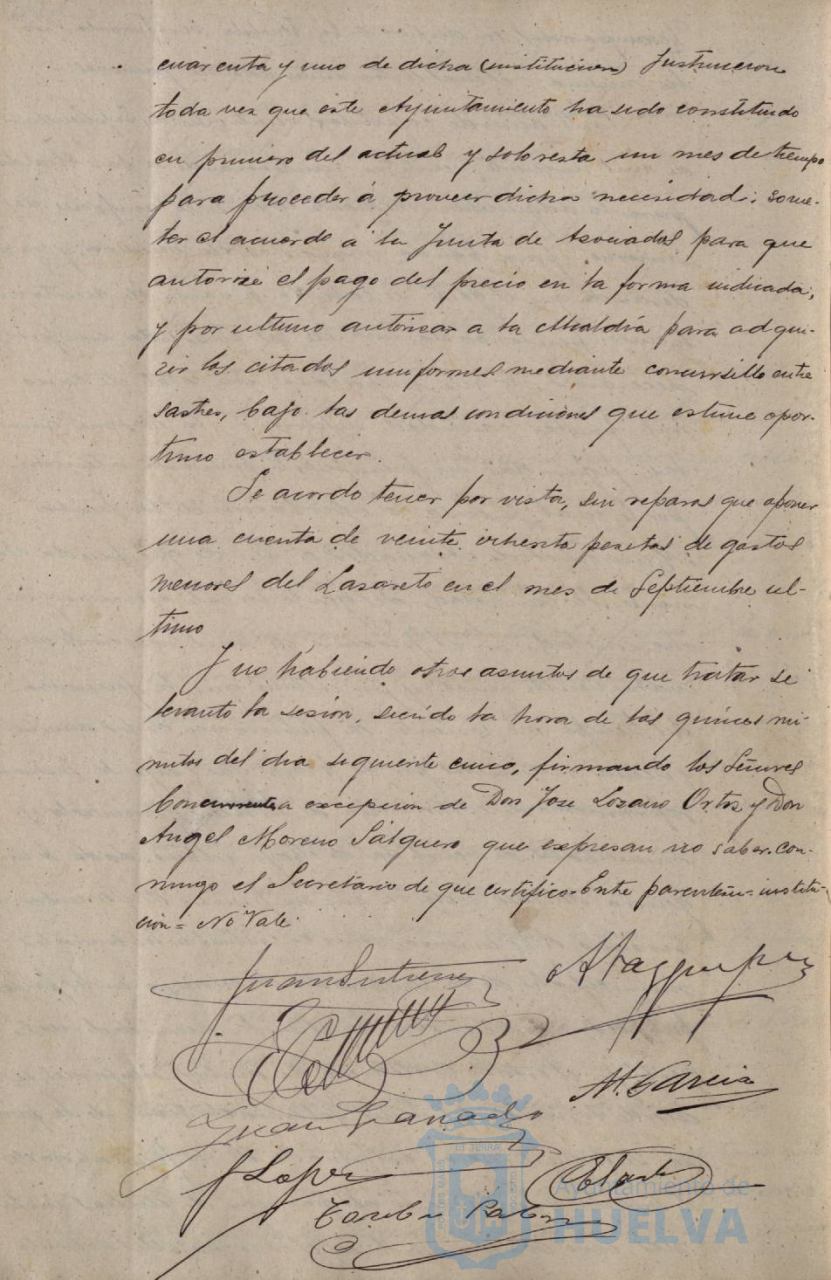 cuarenta y uno de dicha (institucion) Instruccion
toda vez que este Ayuntamiento ha sido constituido
en primero del actual y solo resta un mes de tiempo
para proceder á proveer dicha necesidad; some-
ter el acuerdo a la Junta de Asociados para que
autorice el pago del precio en la forma indicada,
y por ultimo autorizar a la Alcaldía para adqui-
rir los citados uniformes mediante concursillo entre
sastres, bajo las demas condiciones que estime opor-
tuno establecer.
Se acordo tener por vista, sin reparos que oponer
una cuenta de veinte pesetas de gastos
menores del Lazareto en el mes de Septiembre ul-
timo
Y no habiendo otros asuntos de que tratar se
levanto la sesión, siendo la hora de las quince mi-
nutos del dia siguiente cinco, firmando los Señores
Concurrentes a excepcion de Don Jose Lozano Ortiz y Don
Angel Moreno Salguero que expresan no saber con-
migo el Secretario de que certifico=Entre parentesis=institu-
cion=No Vale.
Juan Gutierrez
M. Garcia
Juan Granado
J Lopez
Ayuntamiento de
HUELVA